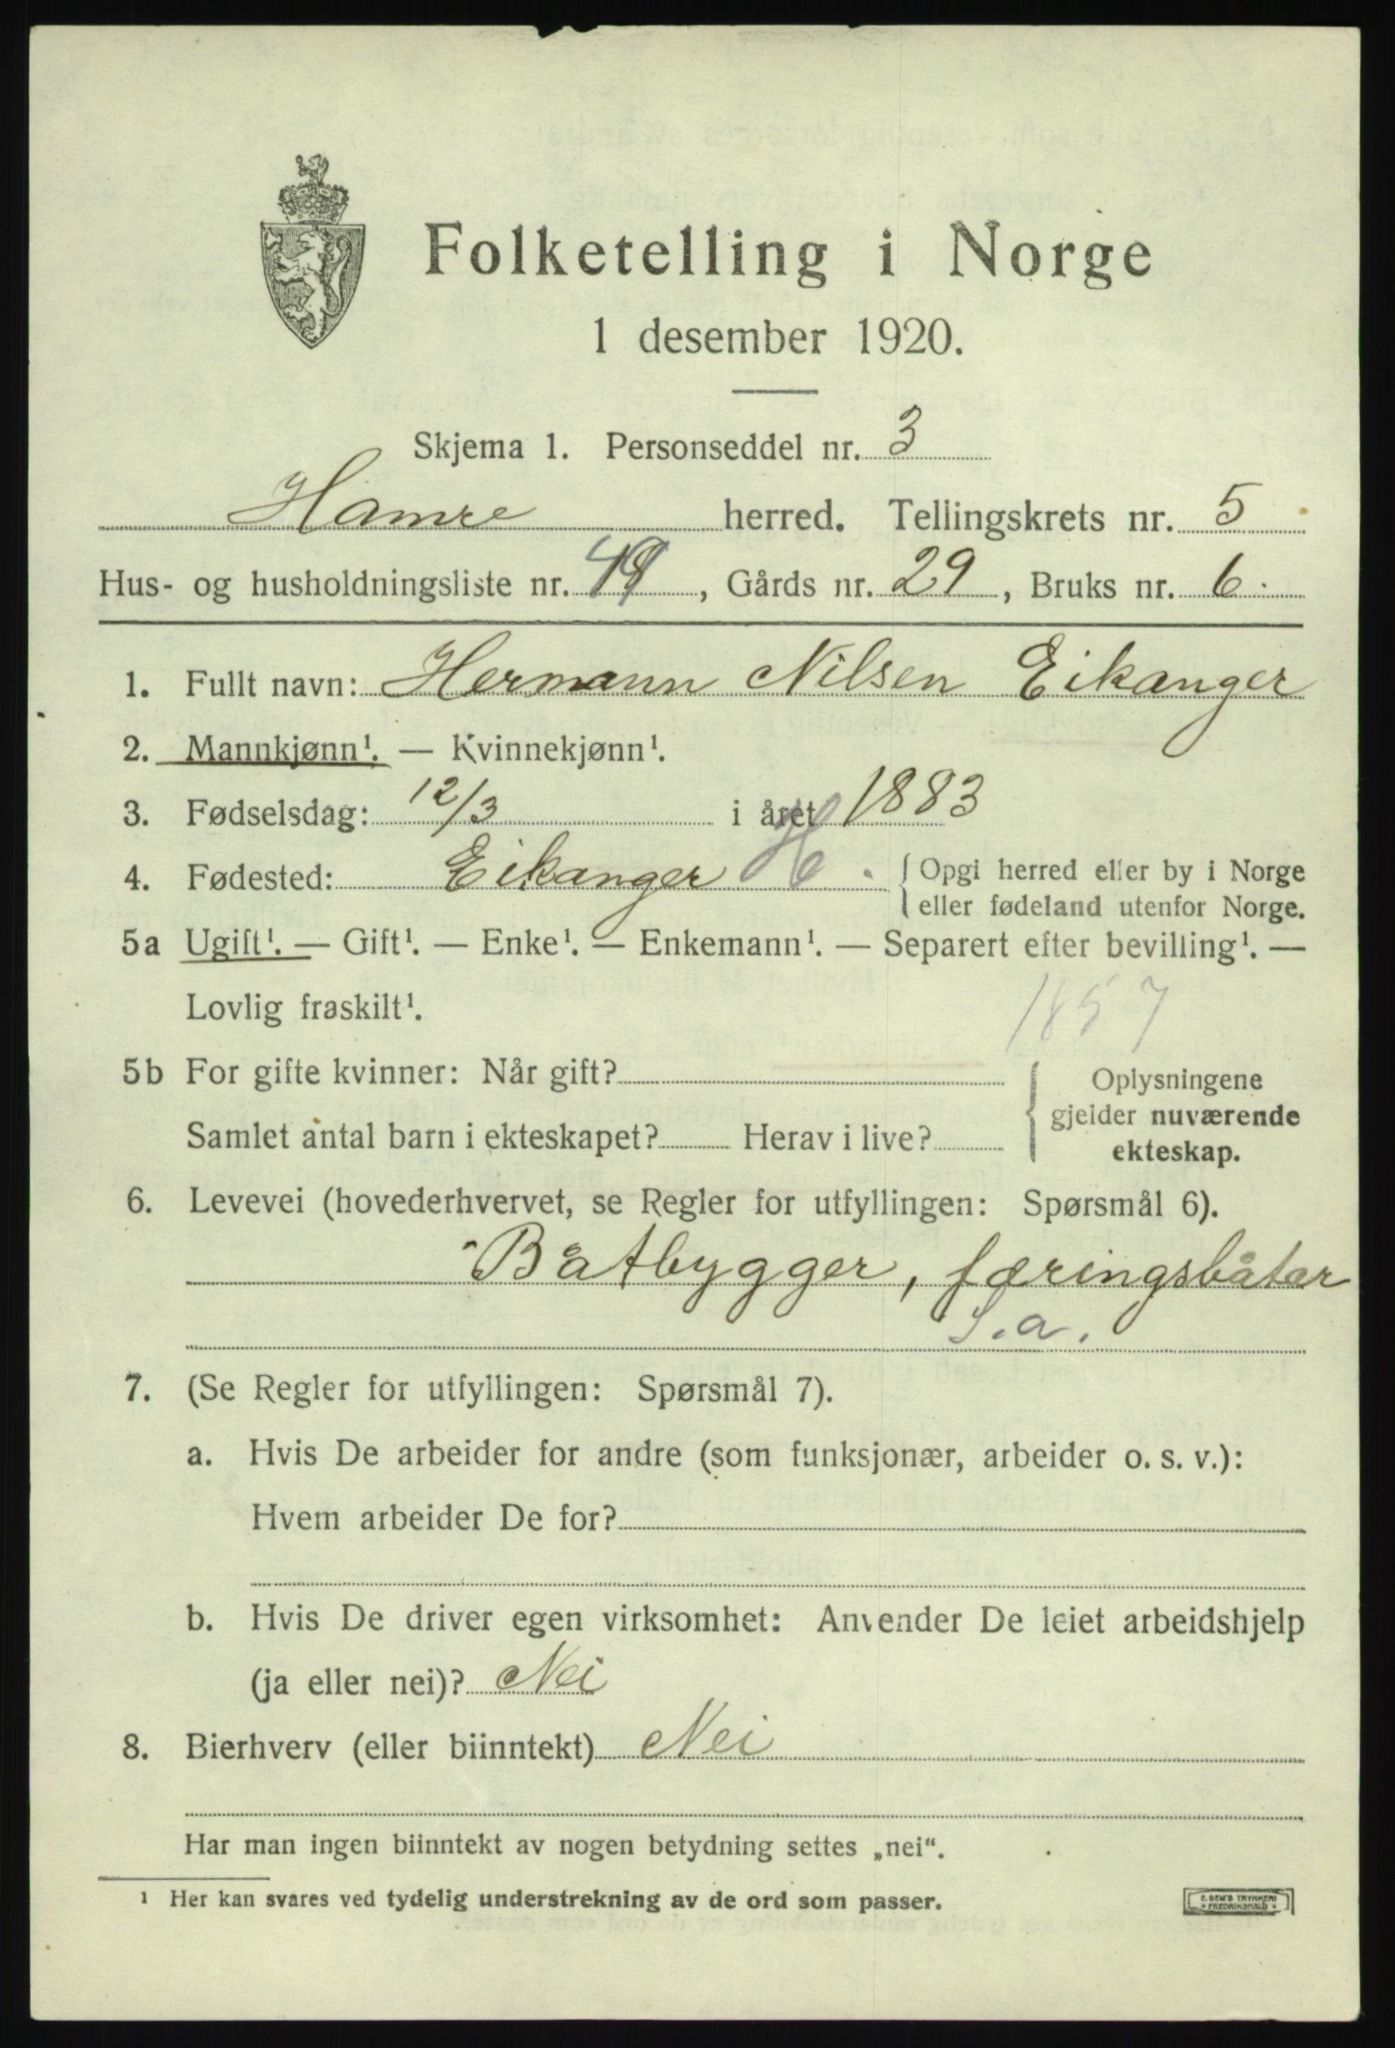 Folketelling i Norge
1 desember 1920.
Skjema 1. Personseddel nr. 3
Hamre herred. Tellingskrets nr. 5
Hus- og husholdningsliste nr. , Gårds nr. 29, Bruks nr. 6.
1. Fullt navn: Hermann Nilsen Eikanger
2. Mannkjønn¹. — Kvinnekjønn¹.
3. Fødselsdag: 12/3 i året 1883
4. Fødested: Eikanger H. { Opgi herred eller by i Norge
eller fødeland utenfor Norge.
5a Ugift¹. — Gift¹. — Enke¹. — Enkemann¹. — Separert efter bevilling¹. —
Lovlig fraskilt¹.
1857
5b For gifte kvinner: Når gift?
Samlet antal barn i ekteskapet? Herav i live?
{ Oplysningene
gjelder nuværende
ekteskap.
6. Levevei (hovederhvervet, se Regler for utfyllingen: Spørsmål 6).
Båtbygger, færingsbåtar
S.a.
7. (Se Regler for utfyllingen: Spørsmål 7).
a. Hvis De arbeider for andre (som funksjonær, arbeider o. s. v.):
Hvem arbeider De for?
b. Hvis De driver egen virksomhet: Anvender De leiet arbeidshjelp
(ja eller nei)? Nei
8. Bierhverv (eller biinntekt) Nei
Har man ingen biinntekt av nogen betydning settes „nei“.
¹ Her kan svares ved tydelig understrekning av de ord som passer.
E. SEM'S TRYKKERI
FREDRIKSHALD